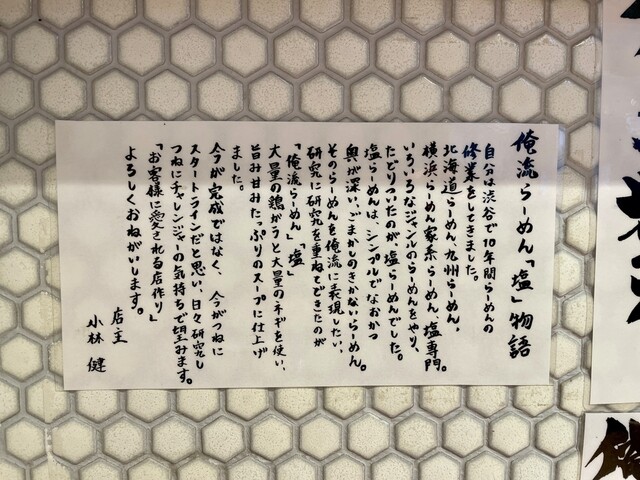 俺流らーめん「塩」物語
自分は渋谷で10年間らーめんの
修業をしてきました。
北海道らーめん、九州らーめん、
横浜らーめん家系らーめん、塩専門。
いろいろなジャンルのらーめんをやり、
たどりついたのが、塩らーめんでした。
塩らーめんは、シンプルでなおかつ
奥が深い、ごまかしのきかないらーめん。
そのらーめんを俺流に表現したい、
研究に研究を重ねてできたのが
「俺流らーめん」「塩」
大量の鶏がラと大量のネギを使い、
旨み甘みたっぷりのスープに仕上げ
ました。
今が完成ではなく、今がつねに
スタートラインだと思い、日々研究し
つねにチャレンジャーの気持ちで望みます。
「お客様に愛される店作り」
よろしくおねがいします。
店主
小林 健